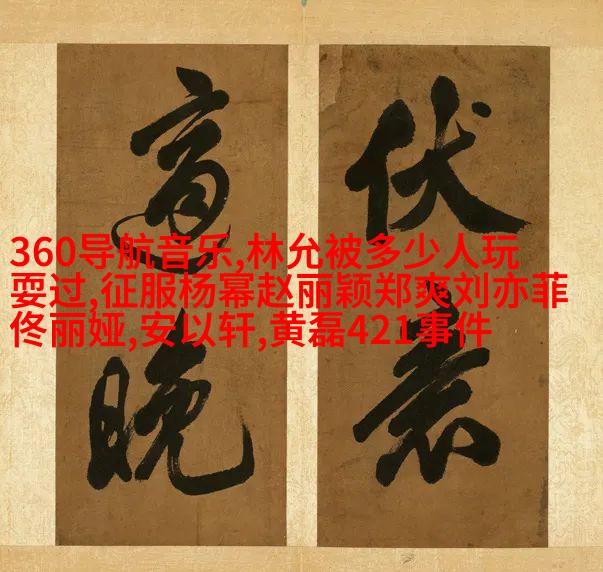 伏
適晚
360导航音乐,林允被多少人玩
耍过,征服杨幂赵丽颖郑爽刘亦菲
佟丽娅,安以轩,黄磊421事件